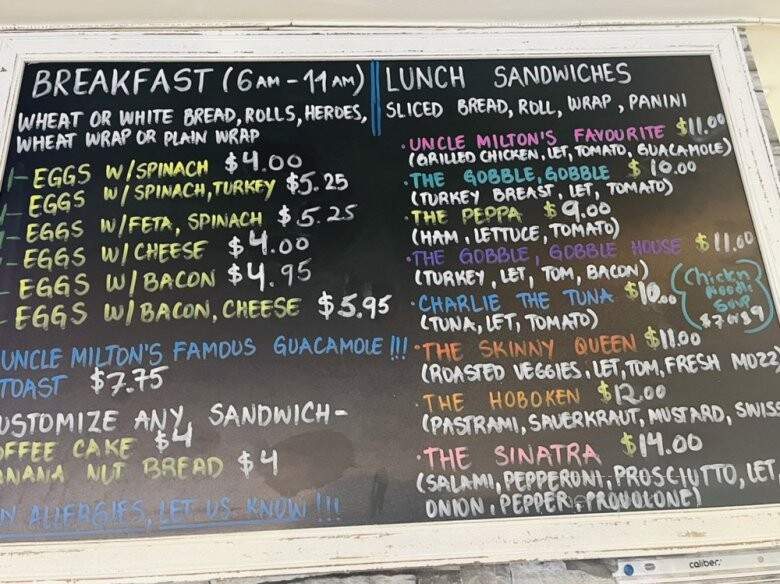 BREAKFAST (6AM-11AM)
WHEAT OR WHITE BREAD, ROLLS, HEROES,
WHEAT WRAP OR PLAIN WRAP
- EGGS W/SPINACH $4.00
- EGGS W/SPINACH, TURKEY $5.25
- EGGS W/FETA, SPINACH $5.25
- EGGS W/CHEESE $4.00
- EGGS W/BACON $4.95
- EGGS W/BACON, CHEESE $5.95
UNCLE MILTON'S FAMOUS GUACAMOLE !!!
TOAST $7.75
USTOMIZE ANY SANDWICH-
OFFEE CAKE $4
NANA NUT BREAD $4
N ALLERGIES, LET US KNOW !!!
LUNCH SANDWICHES
SLICED BREAD, ROLL, WRAP, PANINI
·UNCLE MILTON'S FAVOURITE $11.00
(GRILLED CHICKEN, LET, TOMATO, GUACAMOLE)
·THE GOBBLE, GOBBLE $10.00
(TURKEY BREAST, LET, TOMATO)
·THE PEPPA $9.00
(HAM, LETTUCE, TOMATO)
·THE GOBBLE, GOBBLE HOUSE $11.00
(TURKEY, LET, TOM, BACON)
·CHARLIE THE TUNA $10.00
(TUNA, LET, TOMATO)
·THE SKINNY QUEEN $11.00
(ROASTED VEGGIES, LET, TOM, FRESH MOZZ
·THE HOBOKEN $12.00
(PASTRAMI, SAUERKRAUT, MUSTARD, SWISS
·THE SINATRA $14.00
(SALAMI, PEPPERONI, PROSCIUTTO, LET
ONION, PEPPER, PROVOLONE)
Chickn
Noodle
Soup
$7 or $9
caliber.